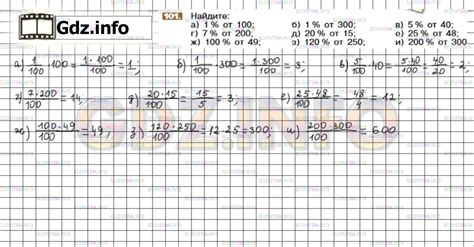 Gdz.info
101. Найдите:
а) 1 % от 100; б) 1 % от 300; в) 5 % от 40;
г) 7 % от 200; д) 20 % от 15; е) 25 % от 48;
ж) 100 % от 49; з) 120 % от 250; и) 200 % от 300
а) 1/100 · 100 = 1·100/100 = 1; б) 1/100 · 300 = 1·300/100 = 3; в) 5/100 · 40 = 5·40/100 = 40/20 = 2;
г) 7·200/100 = 14; д) 20·15/100 = 15/5 = 3; е) 25·48/100 = 48/4 = 12;
ж) 100·49/100 = 49; з) 120·250/100 = 12·25 = 300; и) 200·300/100 = 600.
GDZ.INFO